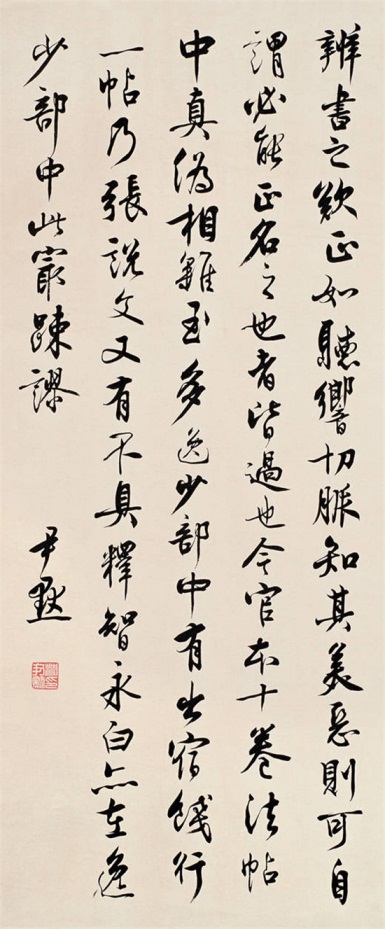 辨書之欵正如聽響切脈知其美惡則可自
謂必能正名之也者皆過也今官本十卷法帖
中真偽相雜至多逸少部中有出宿餞行
一帖乃張說文又有不具釋智永白亦在逸
少部中此㝡踈謬
尹默